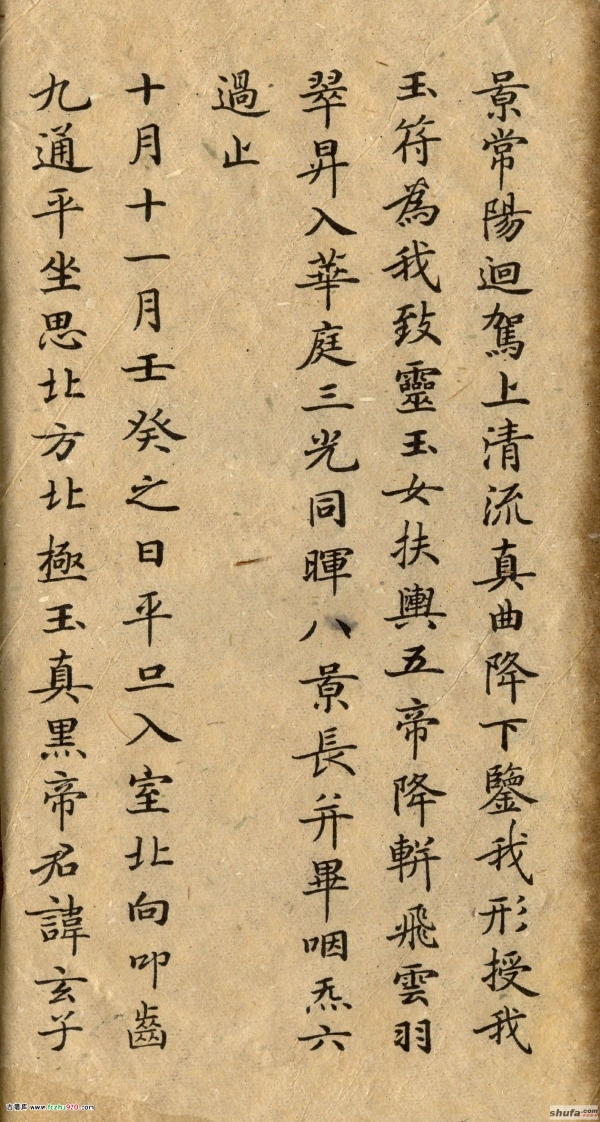 景常陽迴駕上清流真曲降下鑒我形授我
玉符為我致靈玉女扶輿五帝降軿飛雲羽
翠昇入華庭三光同暉八景長并畢咽炁六
過止
十月十一月壬癸之日平旦入室北向叩齒
九通平坐思北方北極玉真黑帝君諱玄子
古墨库 www.fczhu920.com
shufa.com